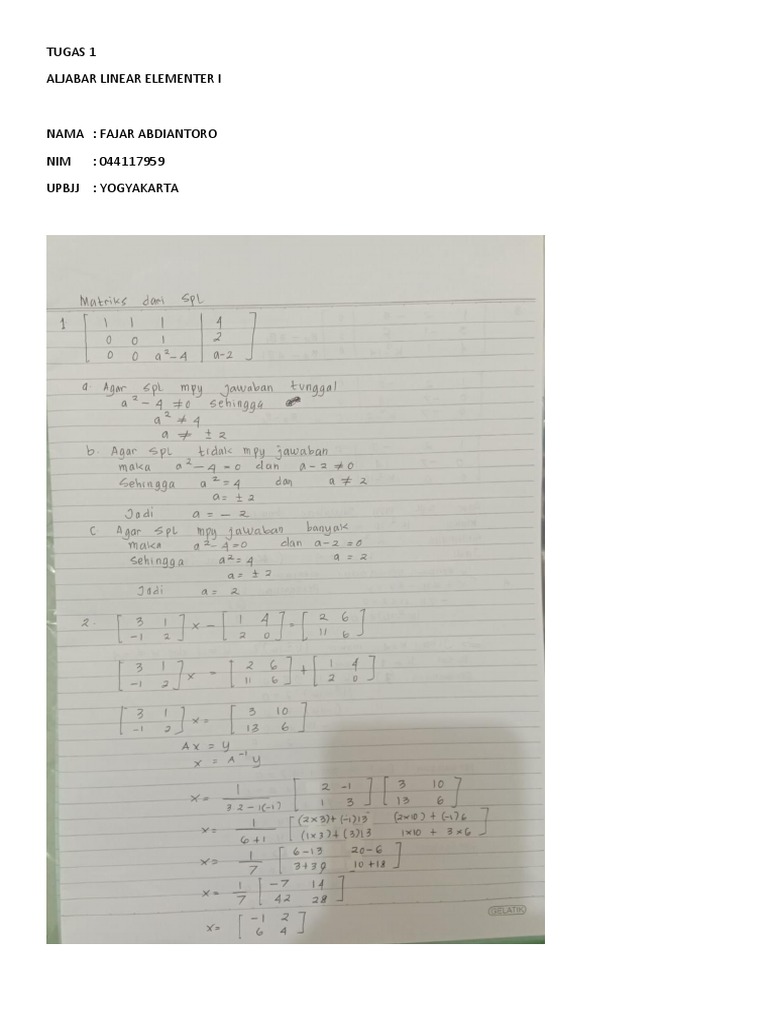 TUGAS 1
ALJABAR LINEAR ELEMENTER I
NAMA : FAJAR ABDIANTORO
NIM : 044117959
UPBJJ : YOGYAKARTA
Matriks dari SPL
1 [ 1 1 1 | 4 ]
[ 0 0 1 | 2 ]
[ 0 0 a²-4 | a-2 ]
a. Agar SPL mpy jawaban tunggal
a² - 4 ≠ 0 sehingga
a² ≠ 4
a ≠ ± 2
b. Agar SPL tidak mpy jawaban
maka a² - 4 = 0 dan a - 2 ≠ 0
Sehingga a² = 4 dan a ≠ 2
a = ± 2
Jadi a = - 2
c Agar SPL mpy jawaban banyak
maka a²-4=0 dan a-2=0
sehingga a²= 4 a = 2
a = ± 2
Jadi a = 2
2. [ 3 1 ] x - [ 1 4 ] = [ 2 6 ]
[ -1 2 ] [ 2 0 ] [ 11 6 ]
[ 3 1 ] x = [ 2 6 ] + [ 1 4 ]
[ -1 2 ] [ 11 6 ] [ 2 0 ]
[ 3 1 ] x = [ 3 10 ]
[ -1 2 ] [ 13 6 ]
Ax = y
x = A⁻¹ y
x = 1 [ 2 -1 ] [ 3 10 ]
3.2 - 1(-1) [ 1 3 ] [ 13 6 ]
x = 1 [ (2x3)+(-1)13 (2x10)+(-1)6 ]
6+1 [ (1x3)+(3)13 1x10 + 3x6 ]
x = 1 [ 6-13 20-6 ]
7 [ 3+39 10+18 ]
x = 1 [ -7 14 ]
7 [ 42 28 ]
x = [ -1 2 ]
[ 6 4 ]
GELATIK